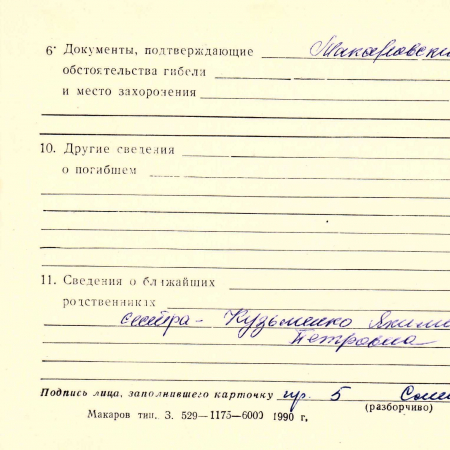 6· Документы, подтверждающие
обстоятельства гибели
и место захоронения
10. Другие сведения
о погибшем
11. Сведения о ближайших
родственниках
сестра - Кузьменко
Петровна
Подпись лица, заполнившего карточку гр. 5
(разборчиво)
Макаров тип. З. 529—1175—6000 1990 г.